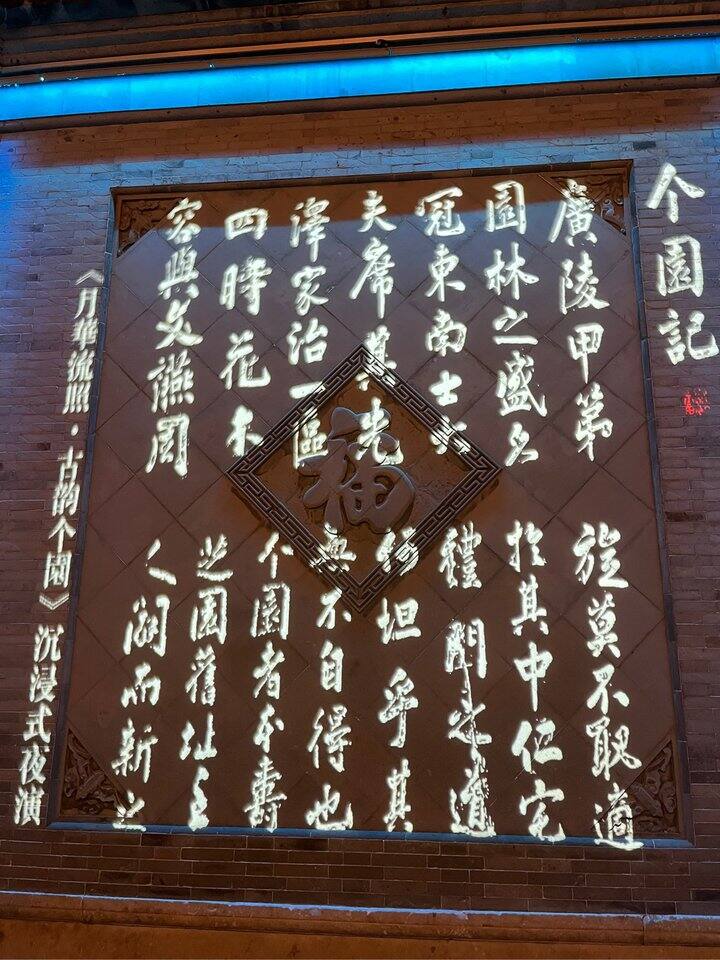 个園記
廣陵甲第
園林之盛名
冠東南士大
夫席其先
澤家治一區
四時花木
容與文讌周
旋莫不取適
於其中仁宅
禮門之道
何坦乎其
無不自得也
个園者本壽
芝園舊址主
人闢而新之
福
《月華流照·古韵个園》沉浸式夜演